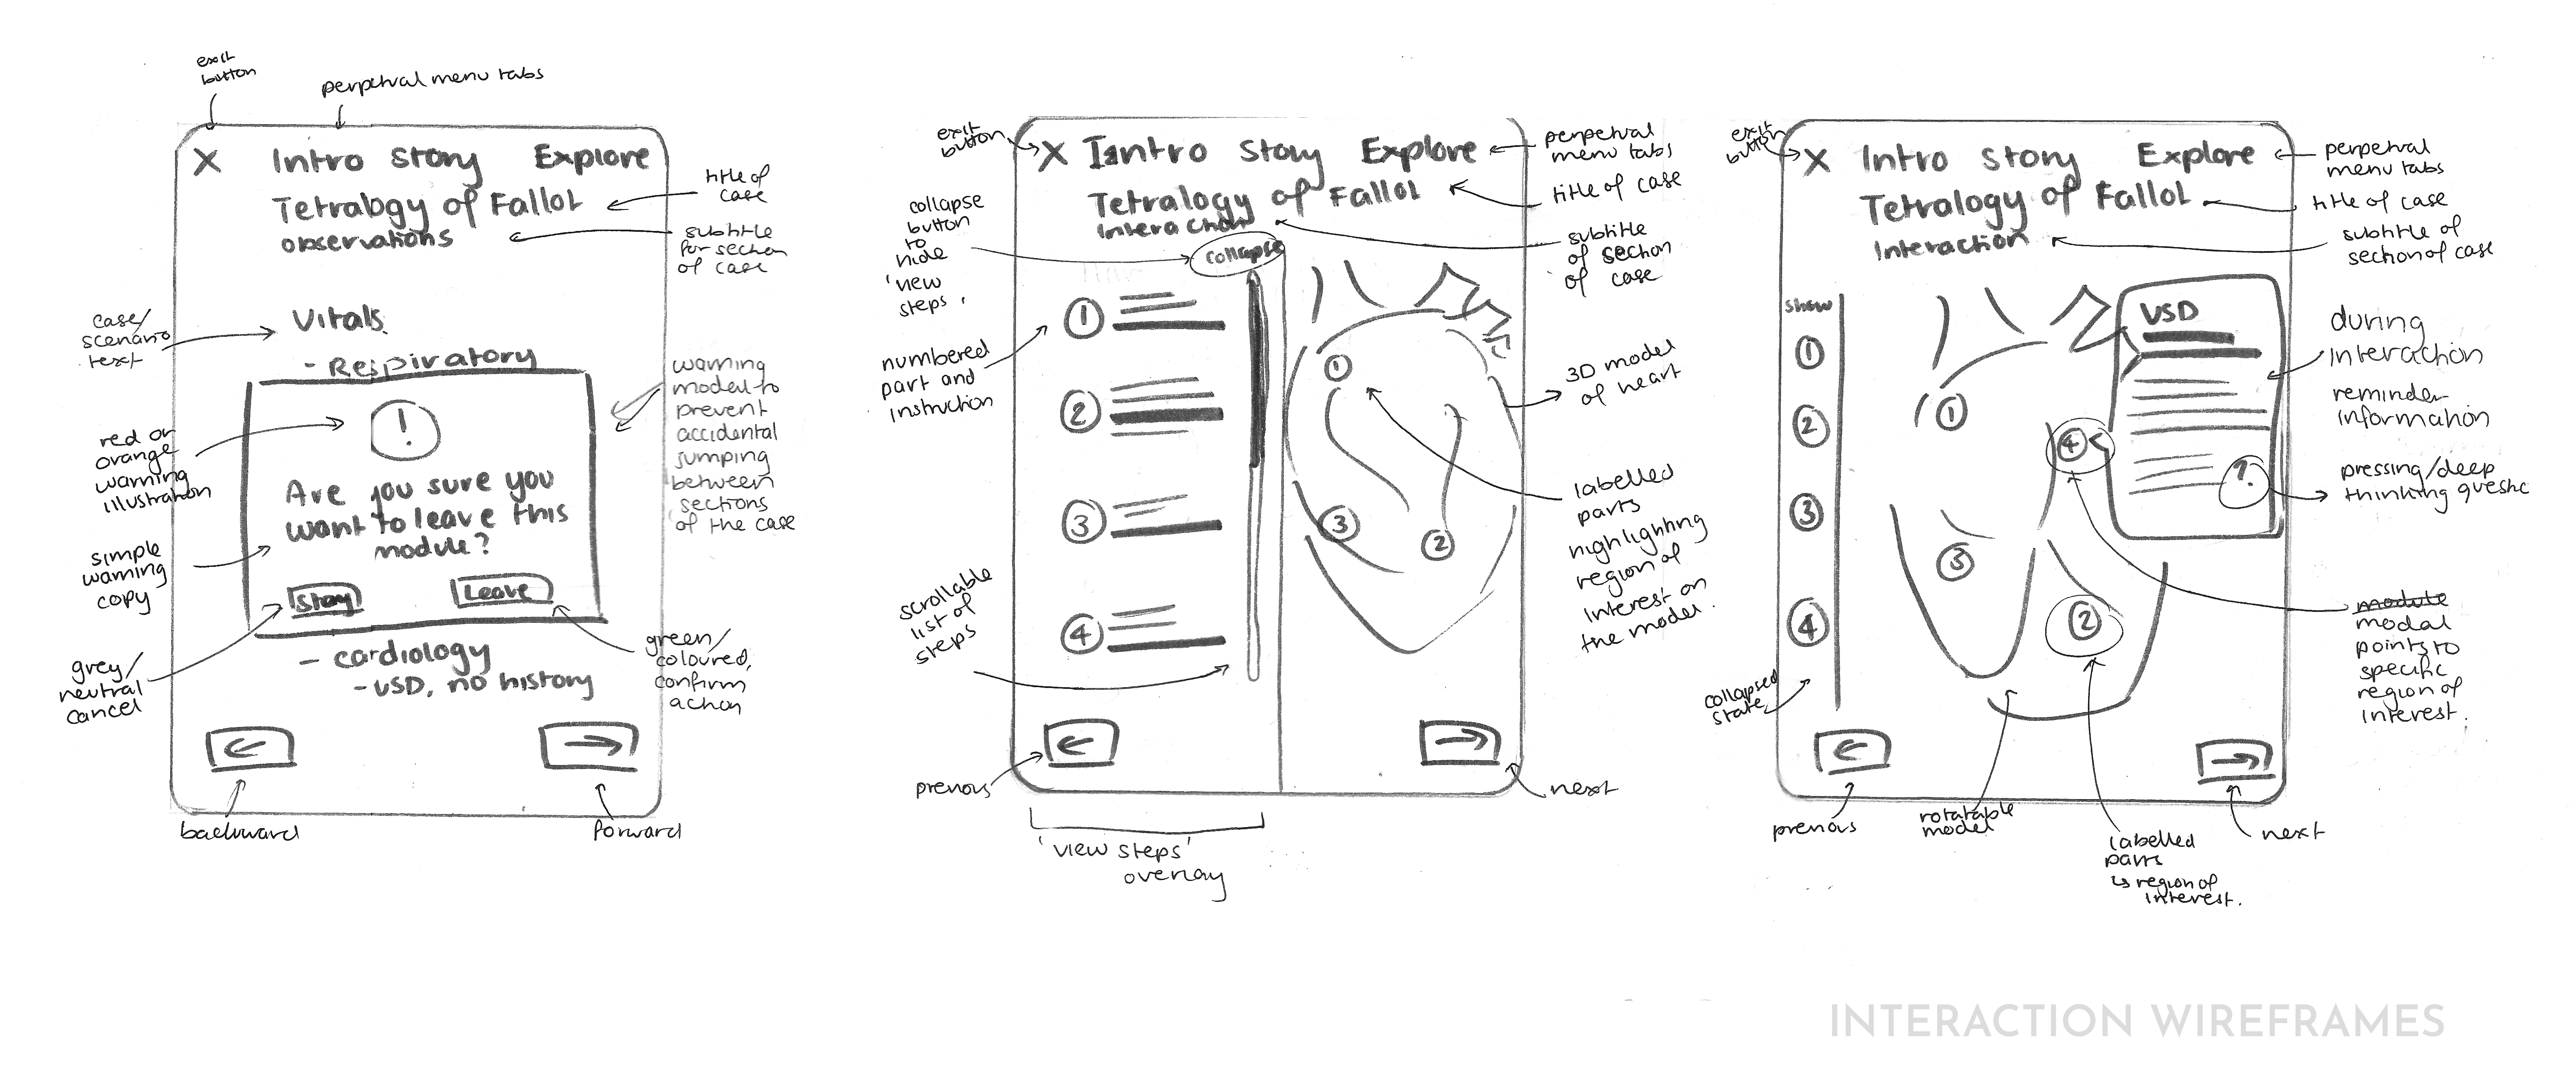 exit
button
perpetual menu tabs
X Intro Story Explore
Tetralogy of Fallot
observations
title of
case
subtitle
for section
of case
case/
scenario
text
Vitals
- Respiratory
warning
modal to
prevent
accidental
jumping
between
sections
of the case
red or
orange
warning
illustration
!
Are you sure you
want to leave this
module?
simple
warning
copy
Stay Leave
grey/
neutral
cancel
green/
coloured,
confirm
action
- cardiology
- VSD, no history
←
→
backward
forward
exit
button
X Intro Story Explore
Tetralogy of Fallot
Interaction
perpetual
menu tabs
title of case
subtitle
of section
of case
collapse
button
to
hide
'new
steps'
collapse
numbered
part and
instruction
1
2
3
4
1
3
2
3D model
of heart
labelled
parts
highlighting
region of
interest on
the model.
scrollable
list of
steps
←
→
previous
next
'view steps'
overlay
exit
button
X Intro Story Explore
Tetralogy of Fallot
Interaction
perpetual
menu tabs
title of case
subtitle of
section of case
show
1
2
3
4
1
4
3
2
VSD
?
during
interaction
reminder
information
pressing/deep
thinking
module
modal
points to
specific
region of
interest.
collapsed
state
←
→
previous
rotatable
model
labelled
parts
↳ region of
interest.
next
INTERACTION WIREFRAMES